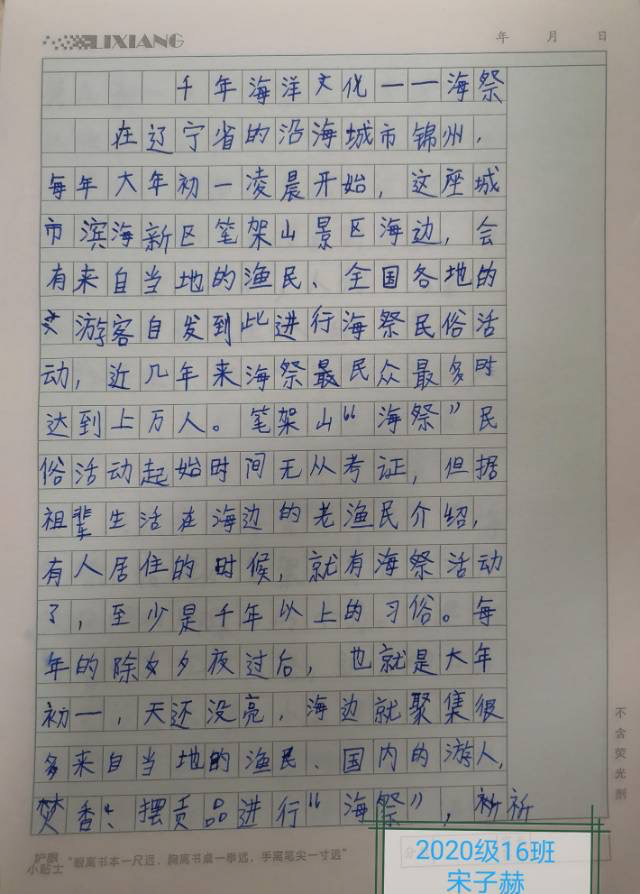 LIXIANG
年 月 日
千年海洋文化——海祭
在辽宁省的沿海城市锦州，
每年大年初一凌晨开始，这座城
市滨海新区笔架山景区海边，会
有来自当地的渔民、全国各地的
游客自发到此进行海祭民俗活
动，近几年来海祭最民众最多时
达到上万人。笔架山“海祭”民
俗活动起始时间无从考证，但据
祖辈生活在海边的老渔民介绍，
有人居住的时候，就有海祭活动
了，至少是千年以上的习俗。每
年的除夕夕夜过后，也就是大年
初一，天还没亮，海边就聚集很
多来自当地的渔民、国内的游人，
焚香、摆贡品进行“海祭”，祈
不含荧光剂
护眼
小贴士
“眼离书本一尺远，胸离书桌一拳远，手离笔尖一寸远”
2020级16班
宋子赫